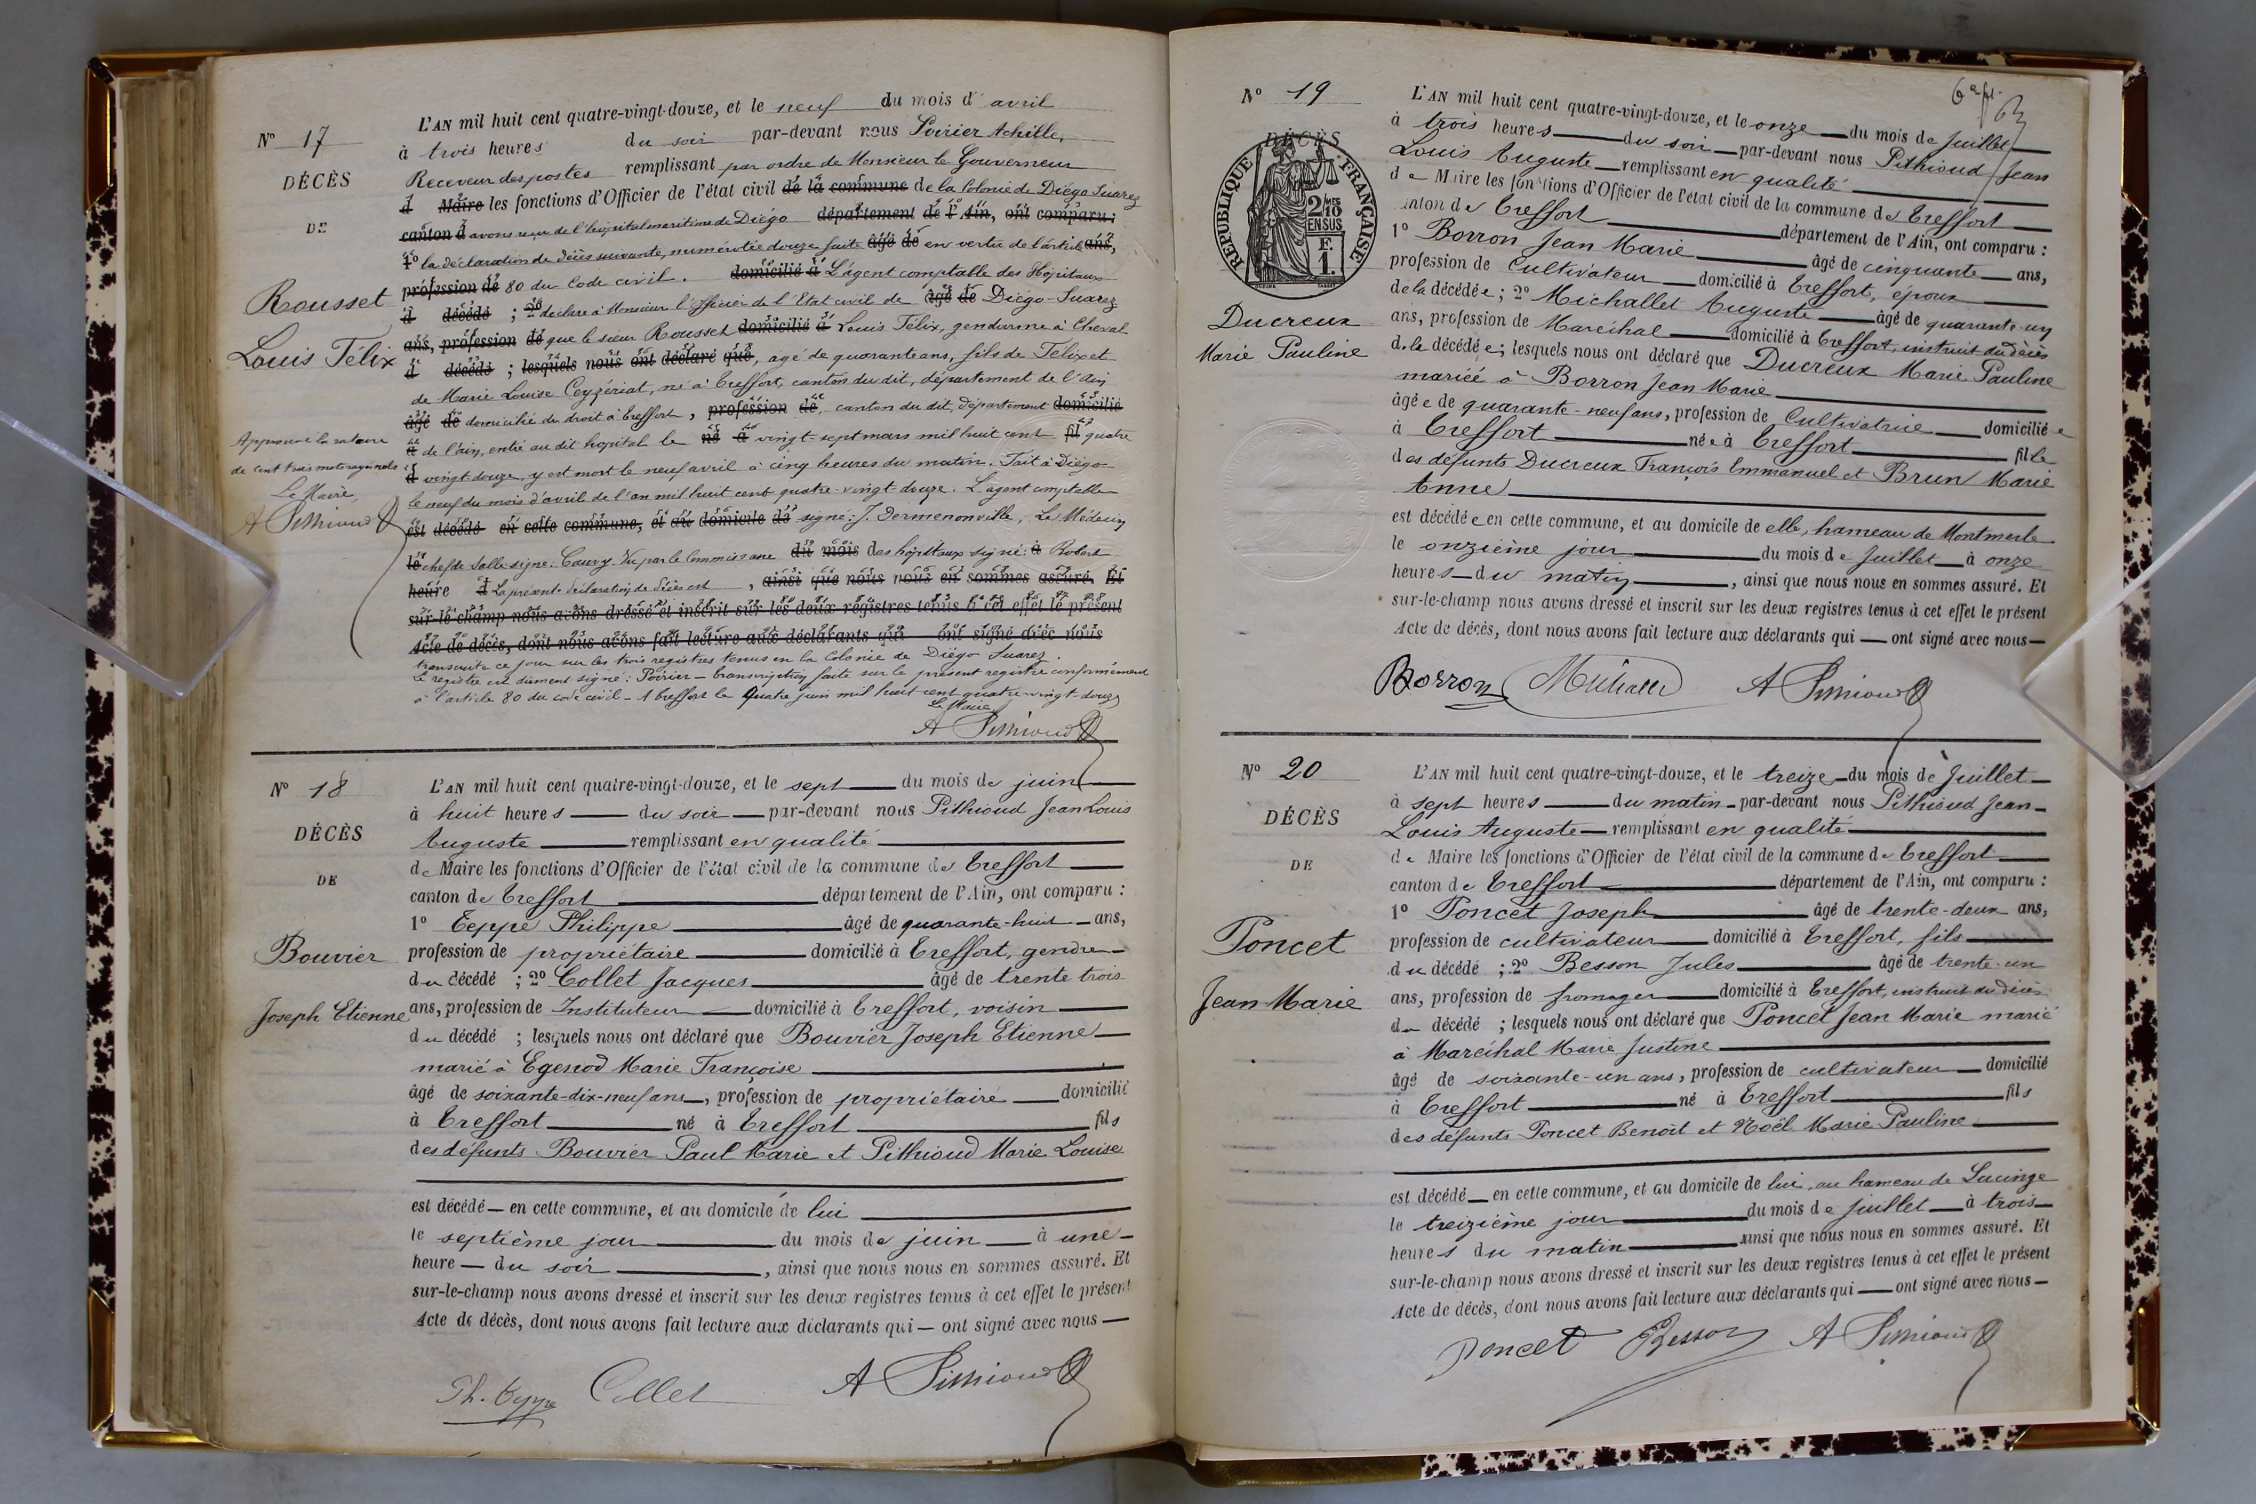 N° 17
DÉCÈS
DE
Rousset
Louis Félix
Approuvé la rature
de cent trois mots rayés nuls
Le Maire
A Pithioud
L'AN mil huit cent quatre-vingt-douze, et le neuf du mois d' avril
à trois heures du soir par-devant nous Poirier Achille,
Receveur des postes remplissant par ordre de Monsieur le Gouverneur
d Maire les fonctions d'Officier de l'état civil de la commune de la Colonie de Diégo Suarez
canton d avons reçu de l'hôpital maritime de Diégo département de l'Ain, ont comparu :
1° la déclaration de décès suivante, numérotée douze faite âgé de en vertu de l'article ans,
profession de 80 du Code civil. domicilié à L'agent comptable des Hôpitaux
d décédé ; 2° déclare à Monsieur l'officier de l'Etat civil de âgé de Diégo-Suarez
ans, profession de que le sieur Rousset domicilié à Louis Félix, gendarme à cheval
d décédé ; lesquels nous ont déclaré que, agé de quarante ans, fils de Félix et
de Marie Louise Ceyzériat, né à Treffort, canton du dit, département de l'Ain
âgé de domicilié de droit à Treffort, profession de, canton du dit, département domicilié
à de l'Ain, entré au dit hopital le né à vingt-sept mars mil huit cent fil quatre
d vingt douze, y est mort le neuf avril à cinq heures du matin. Fait à Diégo
le neuf du mois d'avril de l'an mil huit cent quatre-vingt-douze. L'agent comptable
est décédé en cette commune, et au domicile de signé : J. Dermenonville, Le Médecin
le chef de salle signé : Vu par le Commissaire du mois des hôpitaux signé : à Robert
heure d La présente déclaration de décès est, ainsi que nous nous en sommes assuré. Et
sur-le-champ nous avons dressé et inscrit sur les deux registres tenus à cet effet le présent
Acte de décès, dont nous avons fait lecture aux déclarants qui ont signé avec nous
transcrite ce jour sur les trois registres tenus en la Colonie de Diégo Suarez.
Le registre est dûment signé : Poirier – transcription faite sur le présent registre conformément
à l'article 80 du code civil – A Treffort le quatre juin mil huit cent quatre vingt-douze
Le Maire
A Pithioud
N° 18
DÉCÈS
DE
Bouvier
Joseph Etienne
L'AN mil huit cent quatre-vingt-douze, et le sept du mois de juin
à huit heures du soir par-devant nous Pithioud Jean Louis
Auguste remplissant en qualité
de Maire les fonctions d'Officier de l'état civil de la commune de Treffort
canton de Treffort département de l'Ain, ont comparu :
1° Teppe Philippe âgé de quarante-huit ans,
profession de propriétaire domicilié à Treffort, gendre
du décédé ; 2° Collet Jacques âgé de trente trois
ans, profession de Instituteur domicilié à Treffort, voisin
du décédé ; lesquels nous ont déclaré que Bouvier Joseph Etienne
marié à Egenod Marie Françoise
âgé de soixante-dix-neuf ans, profession de propriétaire domicilié
à Treffort né à Treffort fils
des défunts Bouvier Paul Marie et Pithioud Marie Louise
est décédé en cette commune, et au domicile de lui
le septième jour du mois de juin à une
heure du soir, ainsi que nous nous en sommes assuré. Et
sur-le-champ nous avons dressé et inscrit sur les deux registres tenus à cet effet le présent
Acte de décès, dont nous avons fait lecture aux déclarants qui ont signé avec nous
Ph. Teppe Collet A Pithioud
N° 19
DÉCÈS
RÉPUBLIQUE FRANÇAISE
2/10 MES
EN SUS
F.
1.
Ducreux
Marie Pauline
L'AN mil huit cent quatre-vingt-douze, et le onze du mois de Juillet
à trois heures du soir par-devant nous Pithioud Jean
Louis Auguste remplissant en qualité
de Maire les fonctions d'Officier de l'état civil de la commune de Treffort
canton de Treffort département de l'Ain, ont comparu :
1° Borron Jean Marie âgé de cinquante ans,
profession de Cultivateur domicilié à Treffort, époux
de la décédée ; 2° Michallet Auguste âgé de quarante-un
ans, profession de Maréchal domicilié à Treffort, instruit du décès
de la décédée ; lesquels nous ont déclaré que Ducreux Marie Pauline
mariée à Borron Jean Marie
âgée de quarante-neuf ans, profession de Cultivatrice domiciliée
à Treffort née à Treffort fille
des défunts Ducreux François Emmanuel et Brun Marie
Anne
est décédée en cette commune, et au domicile de elle, hameau de Montmerle
le onzième jour du mois de Juillet à onze
heures du matin, ainsi que nous nous en sommes assuré. Et
sur-le-champ nous avons dressé et inscrit sur les deux registres tenus à cet effet le présent
Acte de décès, dont nous avons fait lecture aux déclarants qui ont signé avec nous
Borron Michallet A Pithioud
N° 20
DÉCÈS
DE
Poncet
Jean-Marie
L'AN mil huit cent quatre-vingt-douze, et le treize du mois de Juillet
à sept heures du matin par-devant nous Pithioud Jean-
Louis Auguste remplissant en qualité
de Maire les fonctions d'Officier de l'état civil de la commune de Treffort
canton de Treffort département de l'Ain, ont comparu :
1° Poncet Joseph âgé de trente-deux ans,
profession de cultivateur domicilié à Treffort, fils
du décédé ; 2° Besson Jules âgé de trente-un
ans, profession de fromager domicilié à Treffort, instruit du décès
du décédé ; lesquels nous ont déclaré que Poncet Jean Marie marié
à Maréchal Marie Justine
âgé de soixante-un ans, profession de cultivateur domicilié
à Treffort né à Treffort fils
des défunts Poncet Benoît et Noël Marie Pauline
est décédé en cette commune, et au domicile de lui, au hameau de Lucinge
le treizième jour du mois de Juillet à trois
heures du matin ainsi que nous nous en sommes assuré. Et
sur-le-champ nous avons dressé et inscrit sur les deux registres tenus à cet effet le présent
Acte de décès, dont nous avons fait lecture aux déclarants qui ont signé avec nous
Poncet Besson A Pithioud